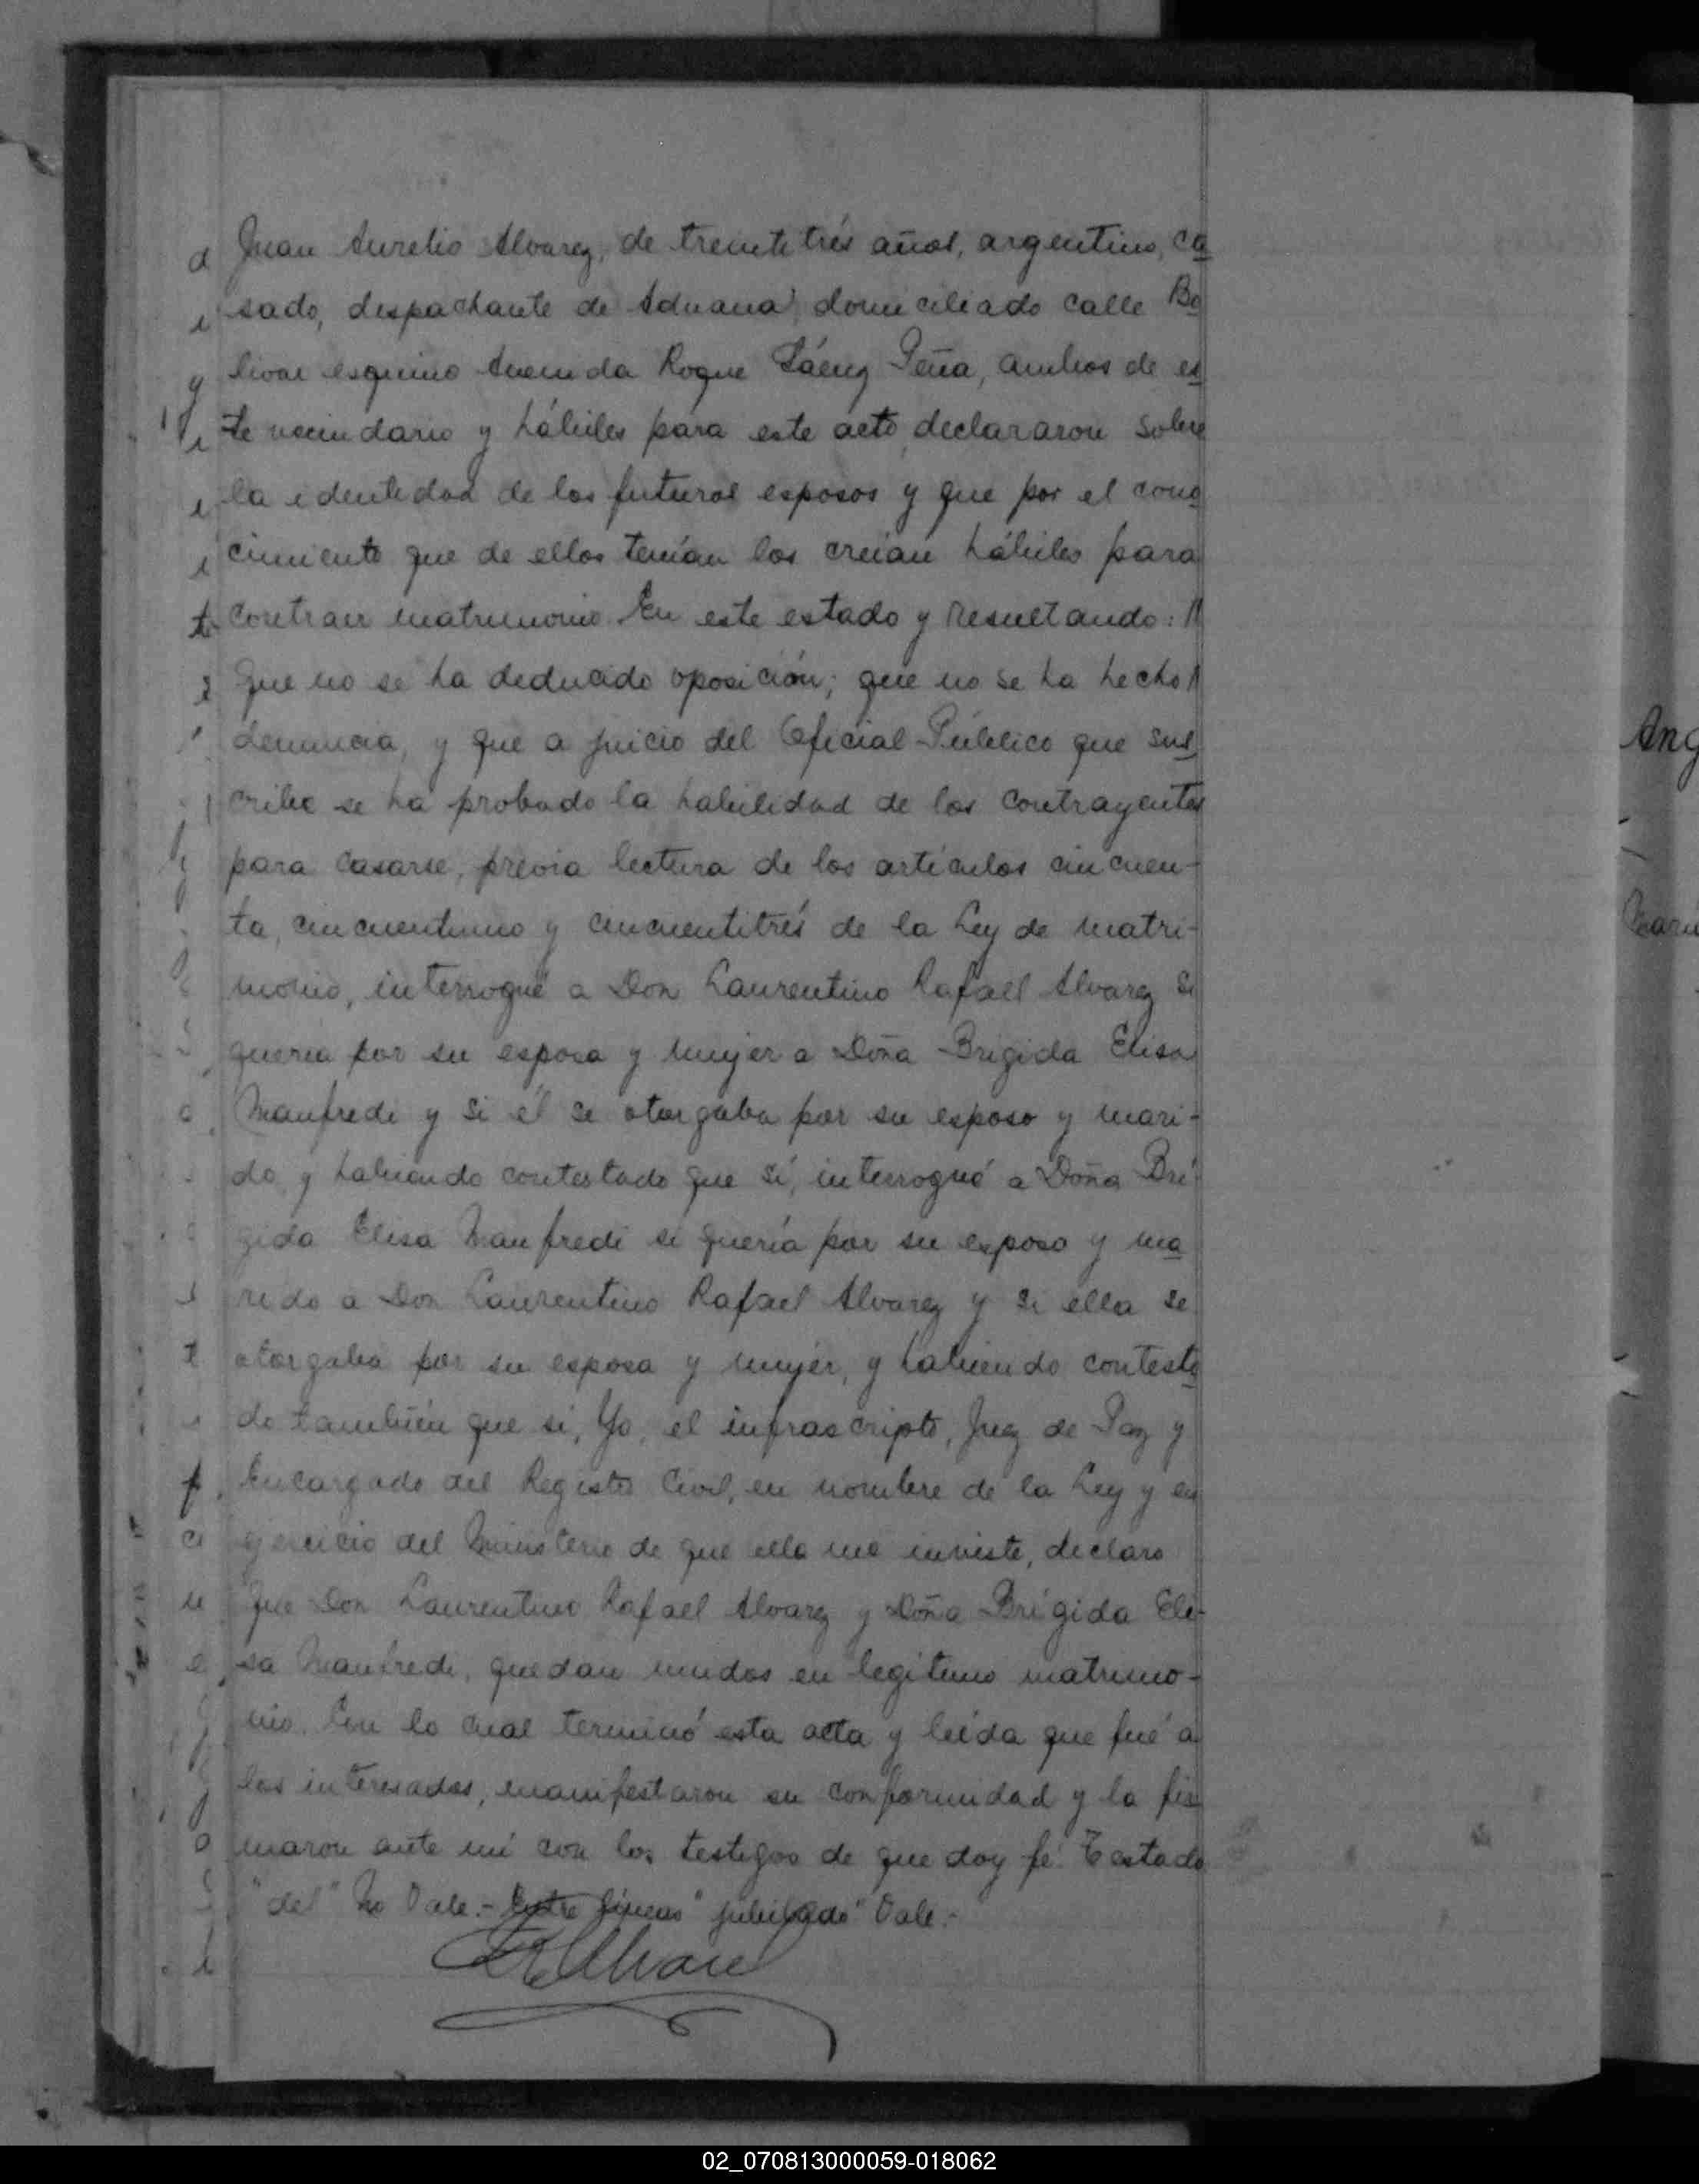 Juan Aurelio Alvarez, de treintitrés años, argentino, ca
sado, despachante de Aduana, domiciliado calle Bo
livar esquina Avenida Roque Sáenz Peña, ambos de es
te vecindario y hábiles para este acto, declararon sobre
la identidad de los futuros esposos y que por el cono
cimiento que de ellos tenían los creían hábiles para
contraer matrimonio. En este estado y resultando: //
Que no se ha deducido oposición; que no se ha hecho //
denuncia, y que a juicio del Oficial Público que sus
cribe se ha probado la habilidad de los contrayentes
para casarse, previa lectura de los artículos cincuen-
ta, cincuentiuno y cincuentitrés de la Ley de matri-
monio, interrogué a Don Laurentino Rafael Alvarez si
quería por su esposa y mujer a Doña Brígida Elisa
Manfredi y si él se otorgaba por su esposo y mari-
do, y habiendo contestado que sí, interrogué a Doña Brí
gida Elisa Manfredi si quería por su esposo y ma
rido a Don Laurentino Rafael Alvarez y si ella se
otorgaba por su esposa y mujer, y habiendo contesta
do también que sí, Yo, el infrascripto, Juez de Paz y
Encargado del Registro Civil, en nombre de la Ley y en
ejercicio del Ministerio de que ella me inviste, declaro
Que Don Laurentino Rafael Alvarez y Doña Brígida Eli-
sa Manfredi, quedan unidos en legítimo matrimo-
nio. Con lo cual terminó esta acta y leída que fué a
los interesados, manifestaron su conformidad y la fir
maron ante mí con los testigos de que doy fé. Testado
"del" No Vale.- Entre líneas "jubilado" Vale.-
LRAlvarez
Ang
02_070813000059-018062